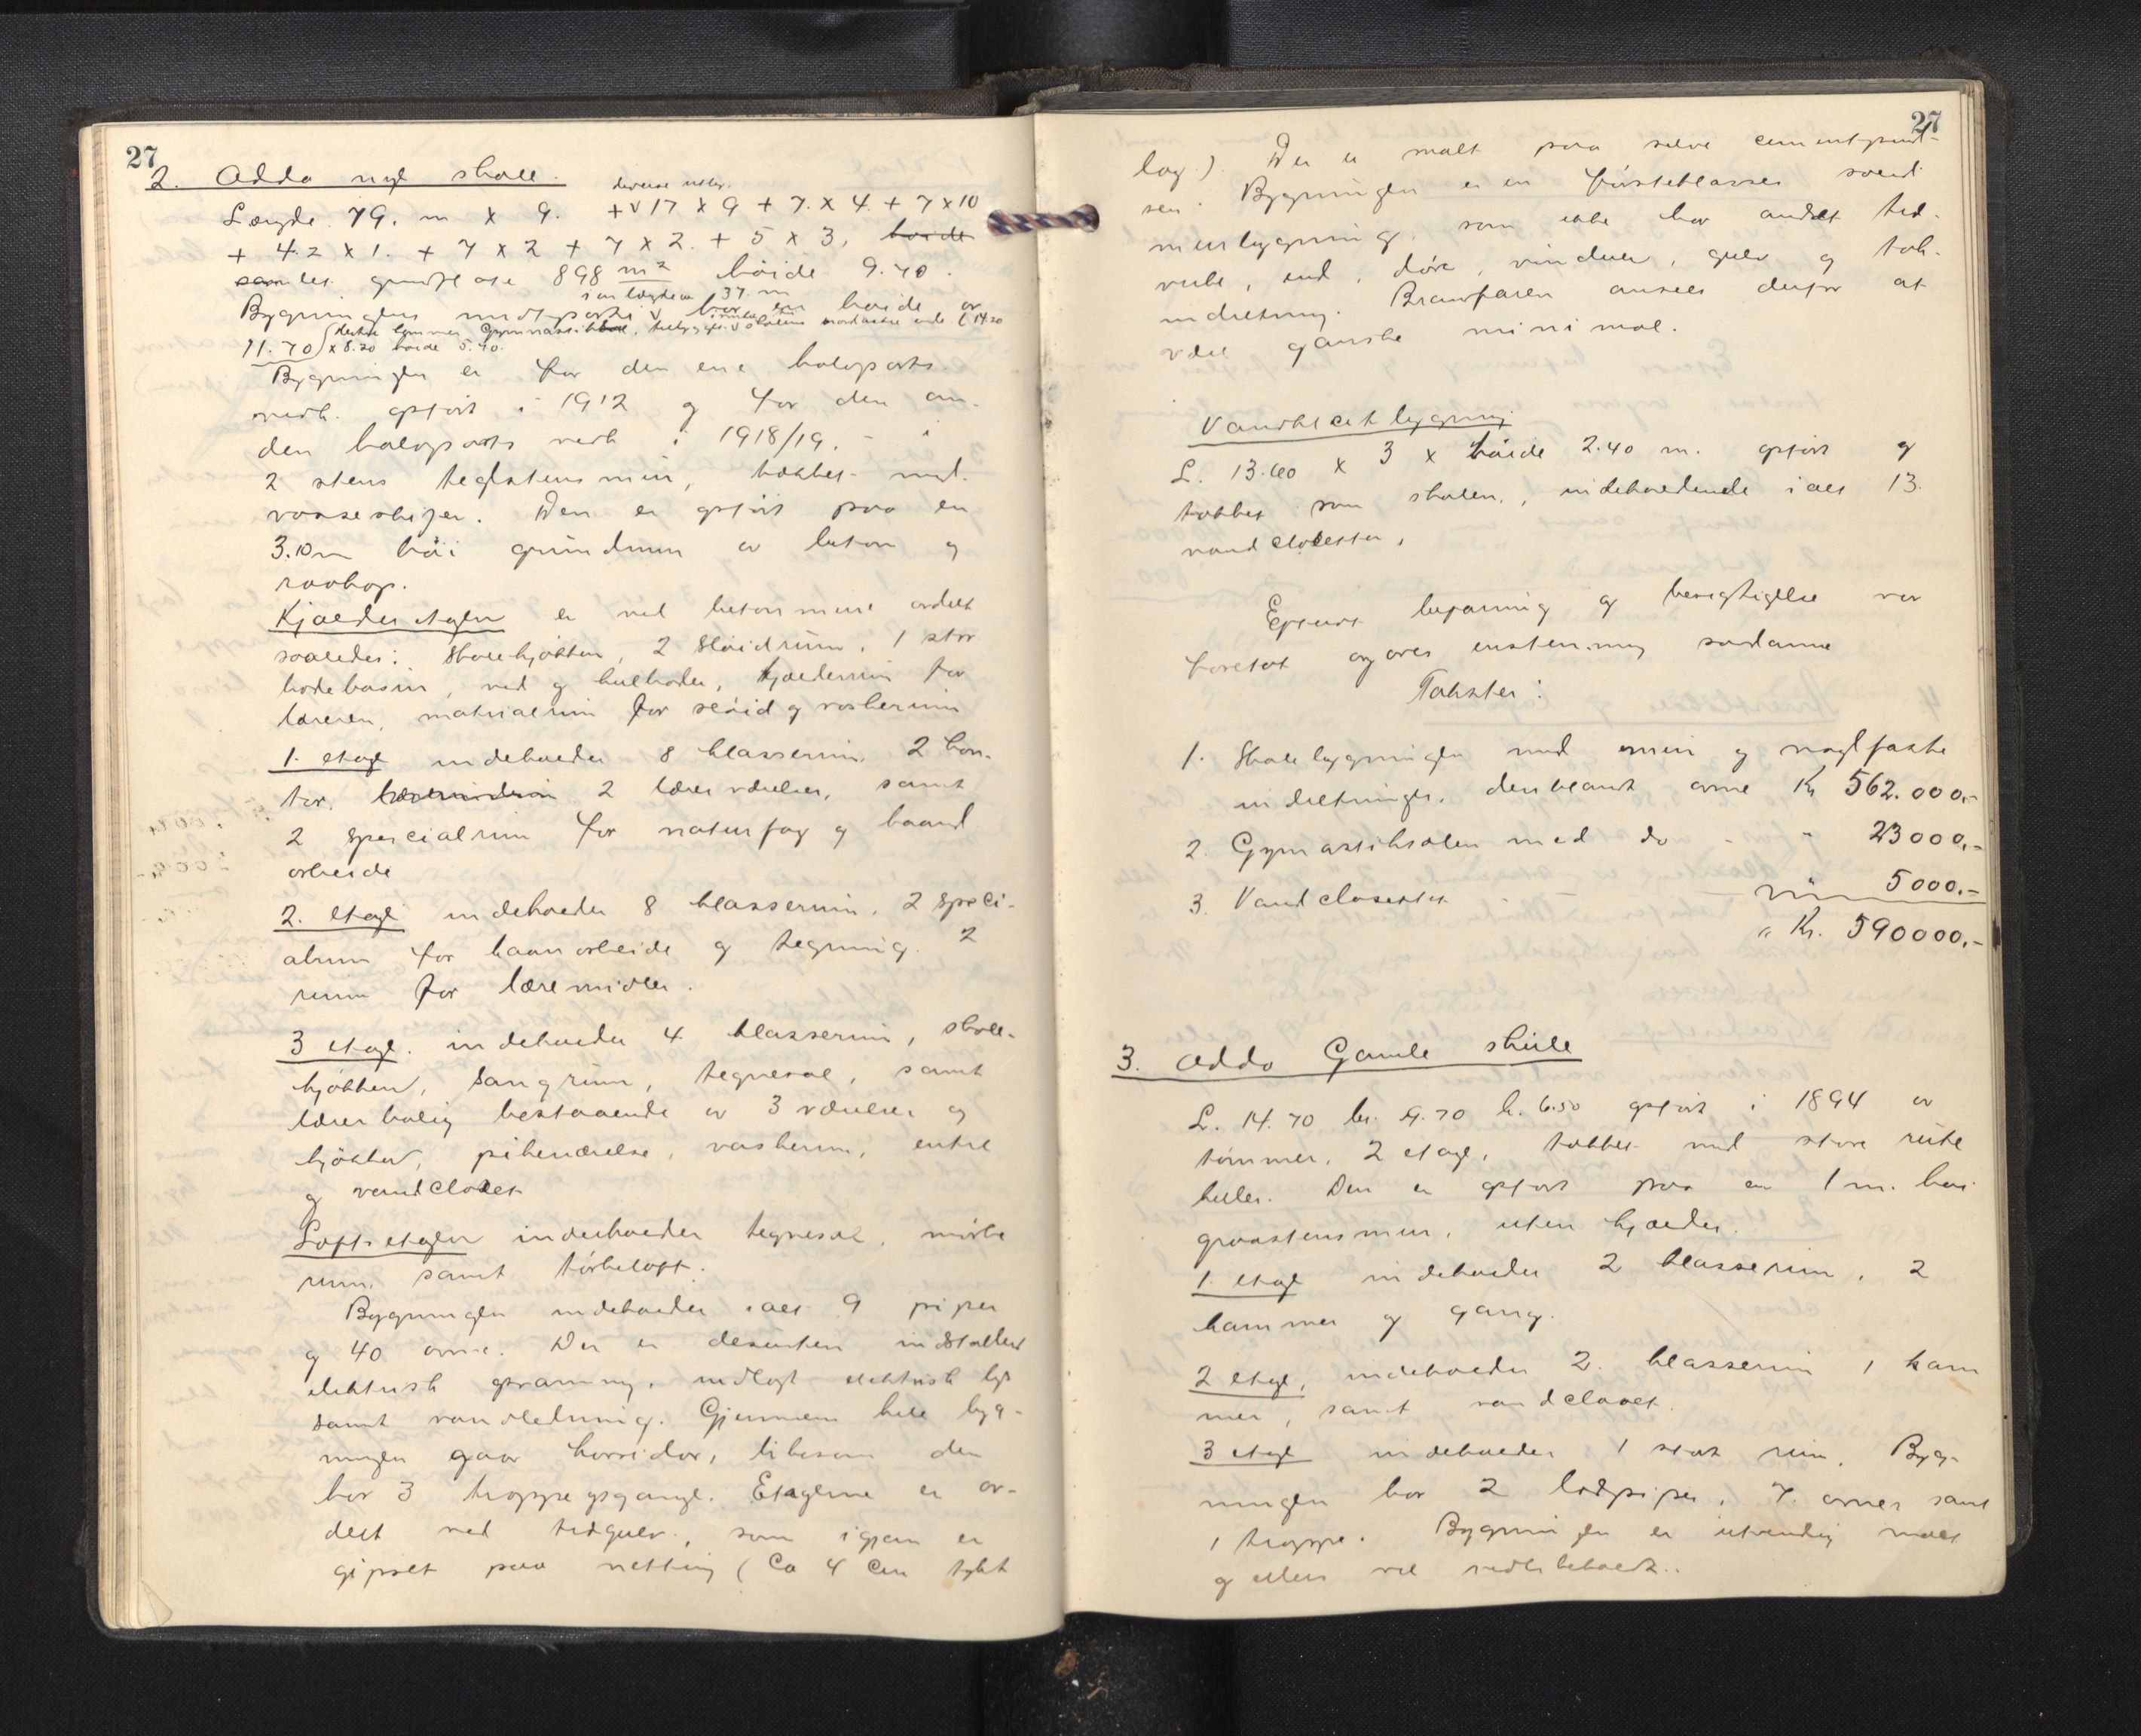 27
2. Odda nye skole.
diverse utbyg.
Længde 79. m x 9. + 17 x 9 + 7. x 4 + 7 x 10
+ 4.2 x 1. + 7 x 2 + 7 x 2. + 5 x 3,
samlet grundflate 898 m² høide 9.70.
i en længde av 37. m
Bygningens midtparti har en høide av
11.70 x 8.20 høide 5.70.
Bygningen er for den ene halvparts
vedk. opført i 1912 og for den an-
den halvparts vedk i 1918/19. - i
2 stens teglstensmur, tækket med
vosseskifer. Den er opført paa en
3.10 m høi grundmur av beton og
raakop.
Kjælderetagen er ved betonmure avdelt
saaledes: Skolekjøkken, 2 sløidrum, 1 stor
badebasin, ved og kulboder, kjælderrum for
læreren, matrialrum for sløid og vaskerum
1. etage indeholder 8 klasserum. 2 kon-
tor. 2 lærerværelser, samt
2 specialrum for naturfag og haand
arbeide
2. etage indeholder 8 klasserum, 2 speci-
alrum for haanarbeide og tegning. 2
rum for læremidler.
3 etage. indeholder 4 klasserum, skole-
kjøkken, sangrum, tegnesal, samt
lærerbolig bestaaende av 3 værelser og
kjøkken, pikeværelse, vaskerum, entre
og vandcloset
Loftsetagen indeholder tegnesal, mørke
rum, samt tørkeloft.
Bygningen indeholder ialt 9 piper
og 40 ovne. Der er desuten indstallert
elektrisk opvarming, indlagt elektrisk lys
samt vandledning. Gjennem hele byg-
ningen gaar korridor, likesom den
har 3 trappeopgange. Etagerne er av-
delt ved trægulv, som igjen er
gipset paa netting (Ca 4 cm tykt
27
lag.) Der er malt paa selve cementpud-
sen. Bygningen er en førsteklasses solid
murbygning, som ikke har andet træ-
verk, end, døre, vinduer, gulv og tak-
indretning. Brandfaren ansees derfor at
være ganske minimal.
Vandklosetbygning
L. 13.60 x 3 x høide 2.40 m. opført og
tækket som skolen, indeholdende ialt 13.
vandclosetter.
Efterat befaring og besigtigelse var
foretat avgaves enstemmig saadanne
Takster:
1. Skolebygningen med mur og naglfaste
indretninger, deriblandt ovne Kr 562.000,-
2. Gymnastiksalen med do - " 23000,-
3. Vandclosetter - " 5000.-
" Kr. 590000,-
3. Odda Gamle skule
L. 14.70 br. 9.70 h. 6.50 opført i 1894 av
tømmer, 2 etage, tækket med store rute
heller. Den er opført paa en 1 m. høi
graastensmur, uten kjælder.
1. etage indeholder 2 klasserum, 2
kammer og gang.
2 etage, indeholder 2. klasserum 1 kam
mer, samt vandcloset.
3 etage indeholder 1 stort rum. Byg-
ningen har 2 lodpiper, 7. ovner samt
1 trappe. Bygningen er utvendig malt
og ellers vel vedlikeholdt..